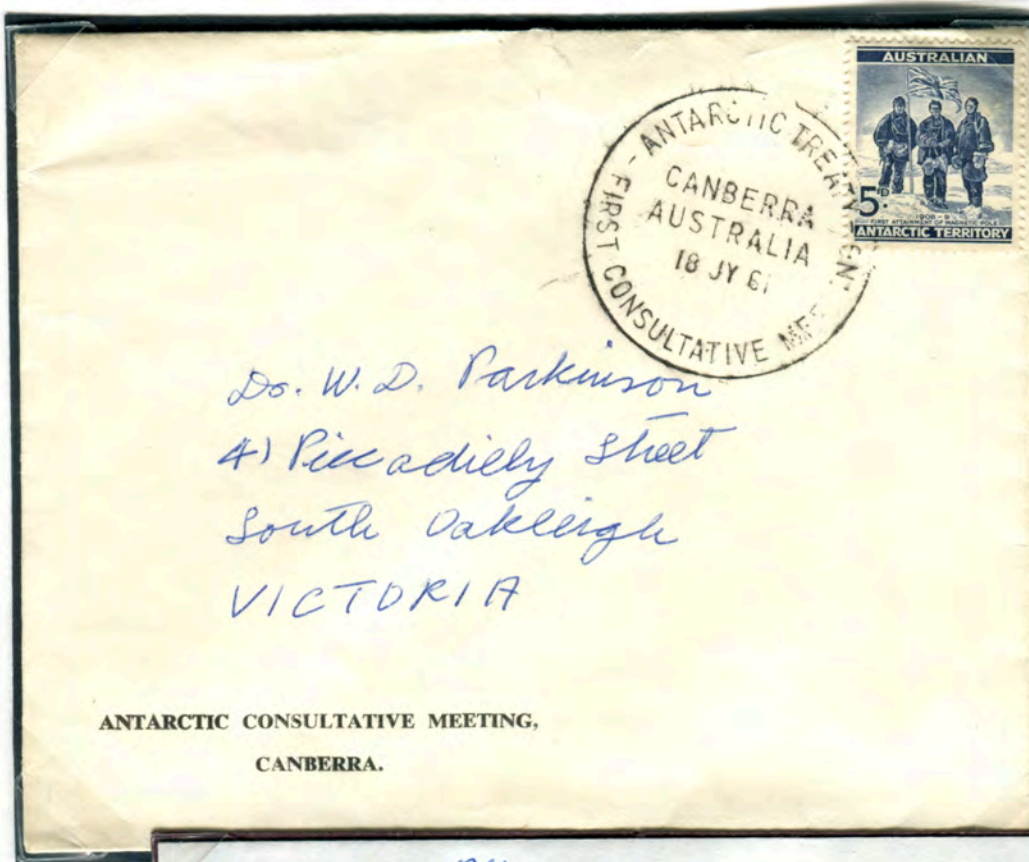 AUSTRALIAN
5D.
1908-9
FIRST ATTAINMENT OF MAGNETIC POLE
ANTARCTIC TERRITORY
- ANTARCTIC TREATY
FIRST CONSULTATIVE
CANBERRA
AUSTRALIA
18 JY 61
Dr. W. D. Parkinson
41 Piccadilly Street
South Oakleigh
VICTORIA
ANTARCTIC CONSULTATIVE MEETING,
CANBERRA.